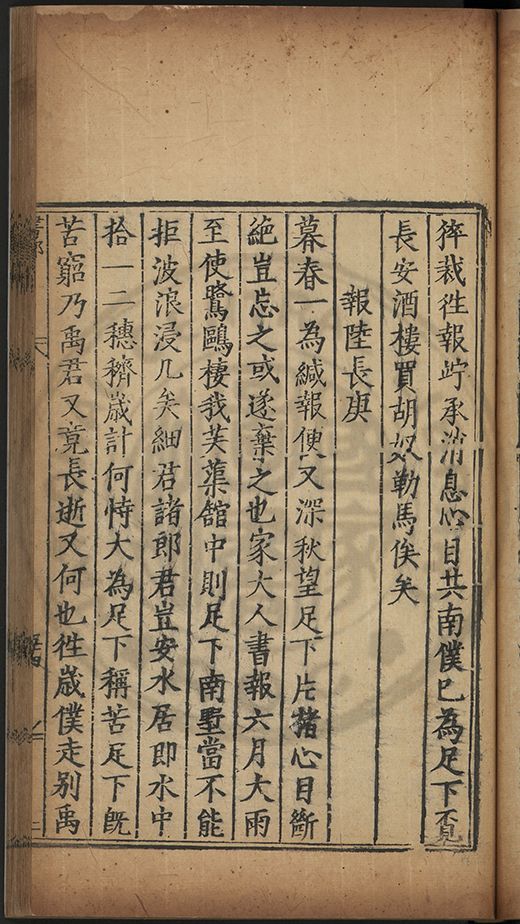 猝裁徃報竚承消息心目共南僕已為足下覔
長安酒樓買胡奴勒馬俟矣
報陸長庚
暮春一為緘報便又深秋望足下片楮心目斷
絶豈忘之或遂棄之也家大人書報六月大雨
至使鷺鷗棲我芙蕖舘中則足下南墅當不能
拒波浪浸几矣細君諸郎君豈安水居即水中
拾一二穗穧歲計何恃大為足下稱苦足下旣
苦窮乃禹君又竟長逝又何也徃歲僕走别禹